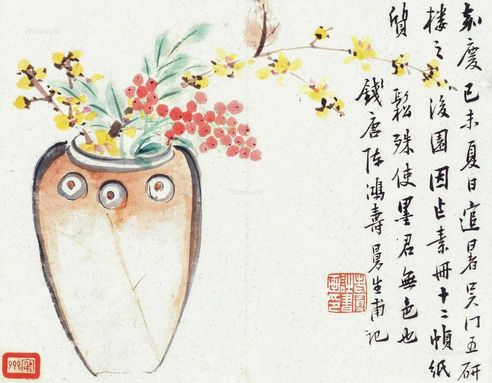 嘉慶己未夏日逭暑吳门五研
楼之後園因占素冊十二幀紙
質鬆殊使墨君無色也
錢唐陈鴻壽曼生甫記